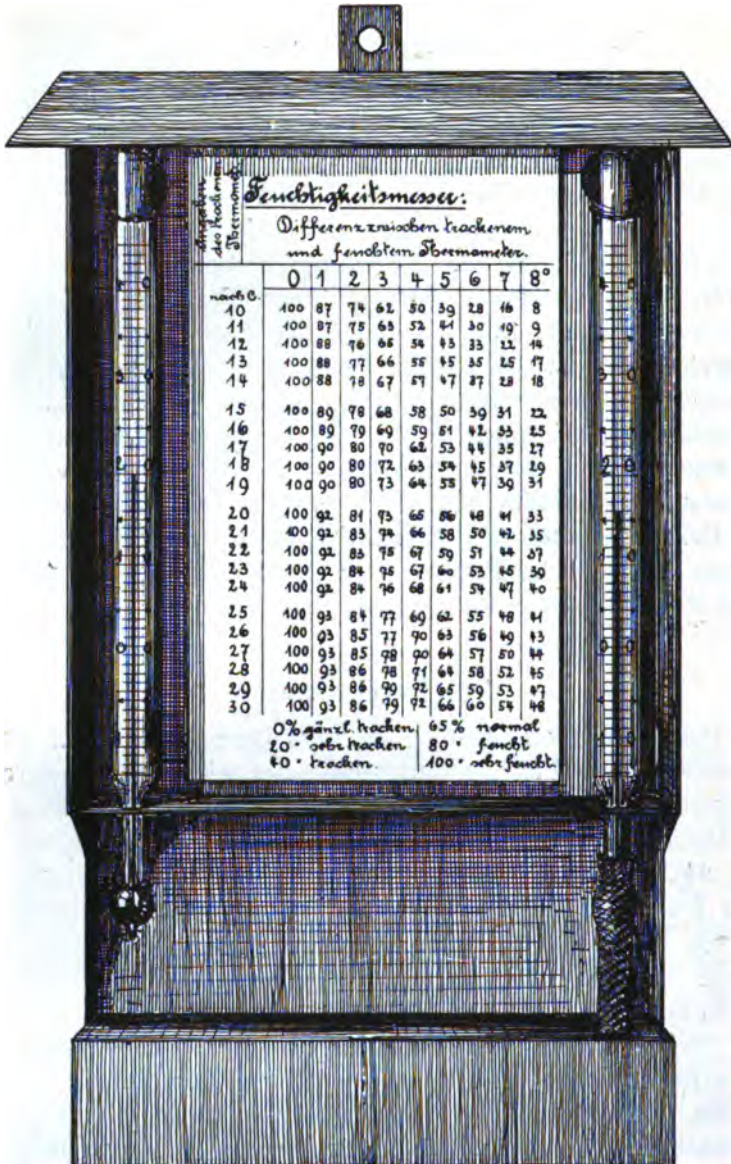 Angaben
des trockenen
Thermomet.
Feuchtigkeitsmesser:
Differenz zwischen trockenem
und feuchtem Thermometer.
0 1 2 3 4 5 6 7 8°
nach C.
10 100 87 74 62 50 39 28 16 8
11 100 87 75 63 52 41 30 19 9
12 100 88 76 65 54 43 33 22 14
13 100 88 77 66 55 45 35 25 17
14 100 88 78 67 57 47 37 28 18
15 100 89 78 68 58 50 39 31 22
16 100 89 79 69 59 51 42 33 25
17 100 90 80 70 62 53 44 35 27
18 100 90 80 72 63 54 45 37 29
19 100 90 80 73 64 55 47 39 31
20 100 92 81 73 65 56 48 41 33
21 100 92 83 74 66 58 50 42 35
22 100 92 83 75 67 59 51 44 37
23 100 92 84 75 67 60 53 45 39
24 100 92 84 76 68 61 54 47 40
25 100 93 84 77 69 62 55 48 41
26 100 93 85 77 70 63 56 49 43
27 100 93 85 78 70 64 57 50 44
28 100 93 86 78 71 64 58 52 45
29 100 93 86 79 72 65 59 53 47
30 100 93 86 79 72 66 60 54 48
0% gänzl. trocken 65% normal
20 " sehr trocken 80 " feucht
40 " trocken 100 " sehr feucht.